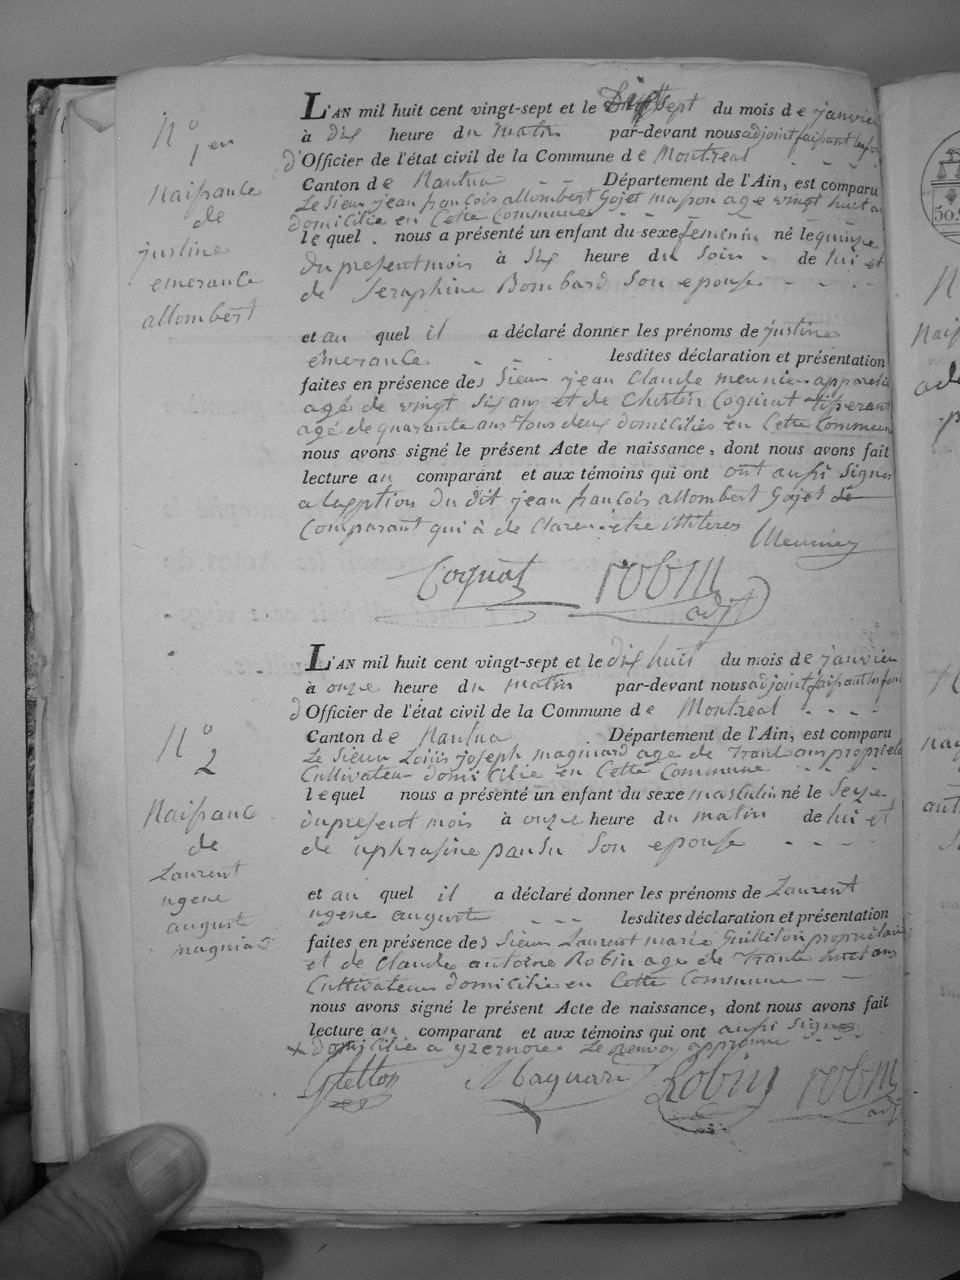 N° 1er
Naissance
de
justine
emerance
allombert
L'AN mil huit cent vingt-sept et le Dixsept du mois de janvier
à dix heure du matin par-devant nous adjoint faisant les fon
d'Officier de l'état civil de la Commune de Montreal
Canton de Nantua Département de l'Ain, est comparu
Le sieur jean françois allombert Gojet masson age vingt huit a
domicilie en Cette Commune
lequel nous a présenté un enfant du sexe feminin né le quinze
du present mois à six heure du soir de lui et
de Seraphine Bombard son epouse
et au quel il a déclaré donner les prénoms de justine
emerance lesdites déclaration et présentation
faites en présence des sieur jean Claude meunier
agé de vingt six ans et de Coquat tisserant
agé de quarante ans tous deux domiciliés en Cette Commun
nous avons signé le présent Acte de naissance, dont nous avons fait
lecture au comparant et aux témoins qui ont ont aussi signer
a lexption du dit jean françois allombert Gojet de
Comparant qui à de Clarer être illiteres Meunier
Coquat robin
adjt
N° 2
Naissance
de
Laurent
ugene
auguste
magniard
L'AN mil huit cent vingt-sept et le dix huit du mois de janvier
à onze heure du matin par-devant nous adjoint faisant les fon
d'Officier de l'état civil de la Commune de Montreal
Canton de Nantua Département de l'Ain, est comparu
Le sieur Louis joseph magniard age de trant ans propriet
Cultivateur domicilie en Cette Commune
lequel nous a présenté un enfant du sexe masculin né le seize
du present mois à onze heure du matin de lui et
de uphrasine pansu son epouse
et au quel il a déclaré donner les prénoms de Laurent
ugene auguste lesdites déclaration et présentation
faites en présence des sieur Laurent marie Guilleton propriétaire
et de Claude antoine Robin age de trante huit ans
Cultivateur domicilie en Cette Commune
nous avons signé le présent Acte de naissance, dont nous avons fait
lecture au comparant et aux témoins qui ont aussi signes
x domicilie a yzernore Le renvoy approuve
Magniard Robin robin
adjt